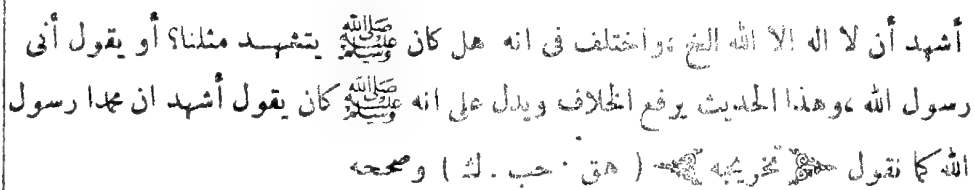 أشهد أن لا اله الا الله الخ ،واختلف فى انه هل كان ﷺ يتشهد مثلنا؟ أو يقول أنى
رسول الله ،وهذا الحديث يرفع الخلاف ويدل على انه ﷺ كان يقول أشهد ان محمدا رسول
الله كما نقول ﴿ تخريجه ﴾ ( هق . حب . ك ) وصححه